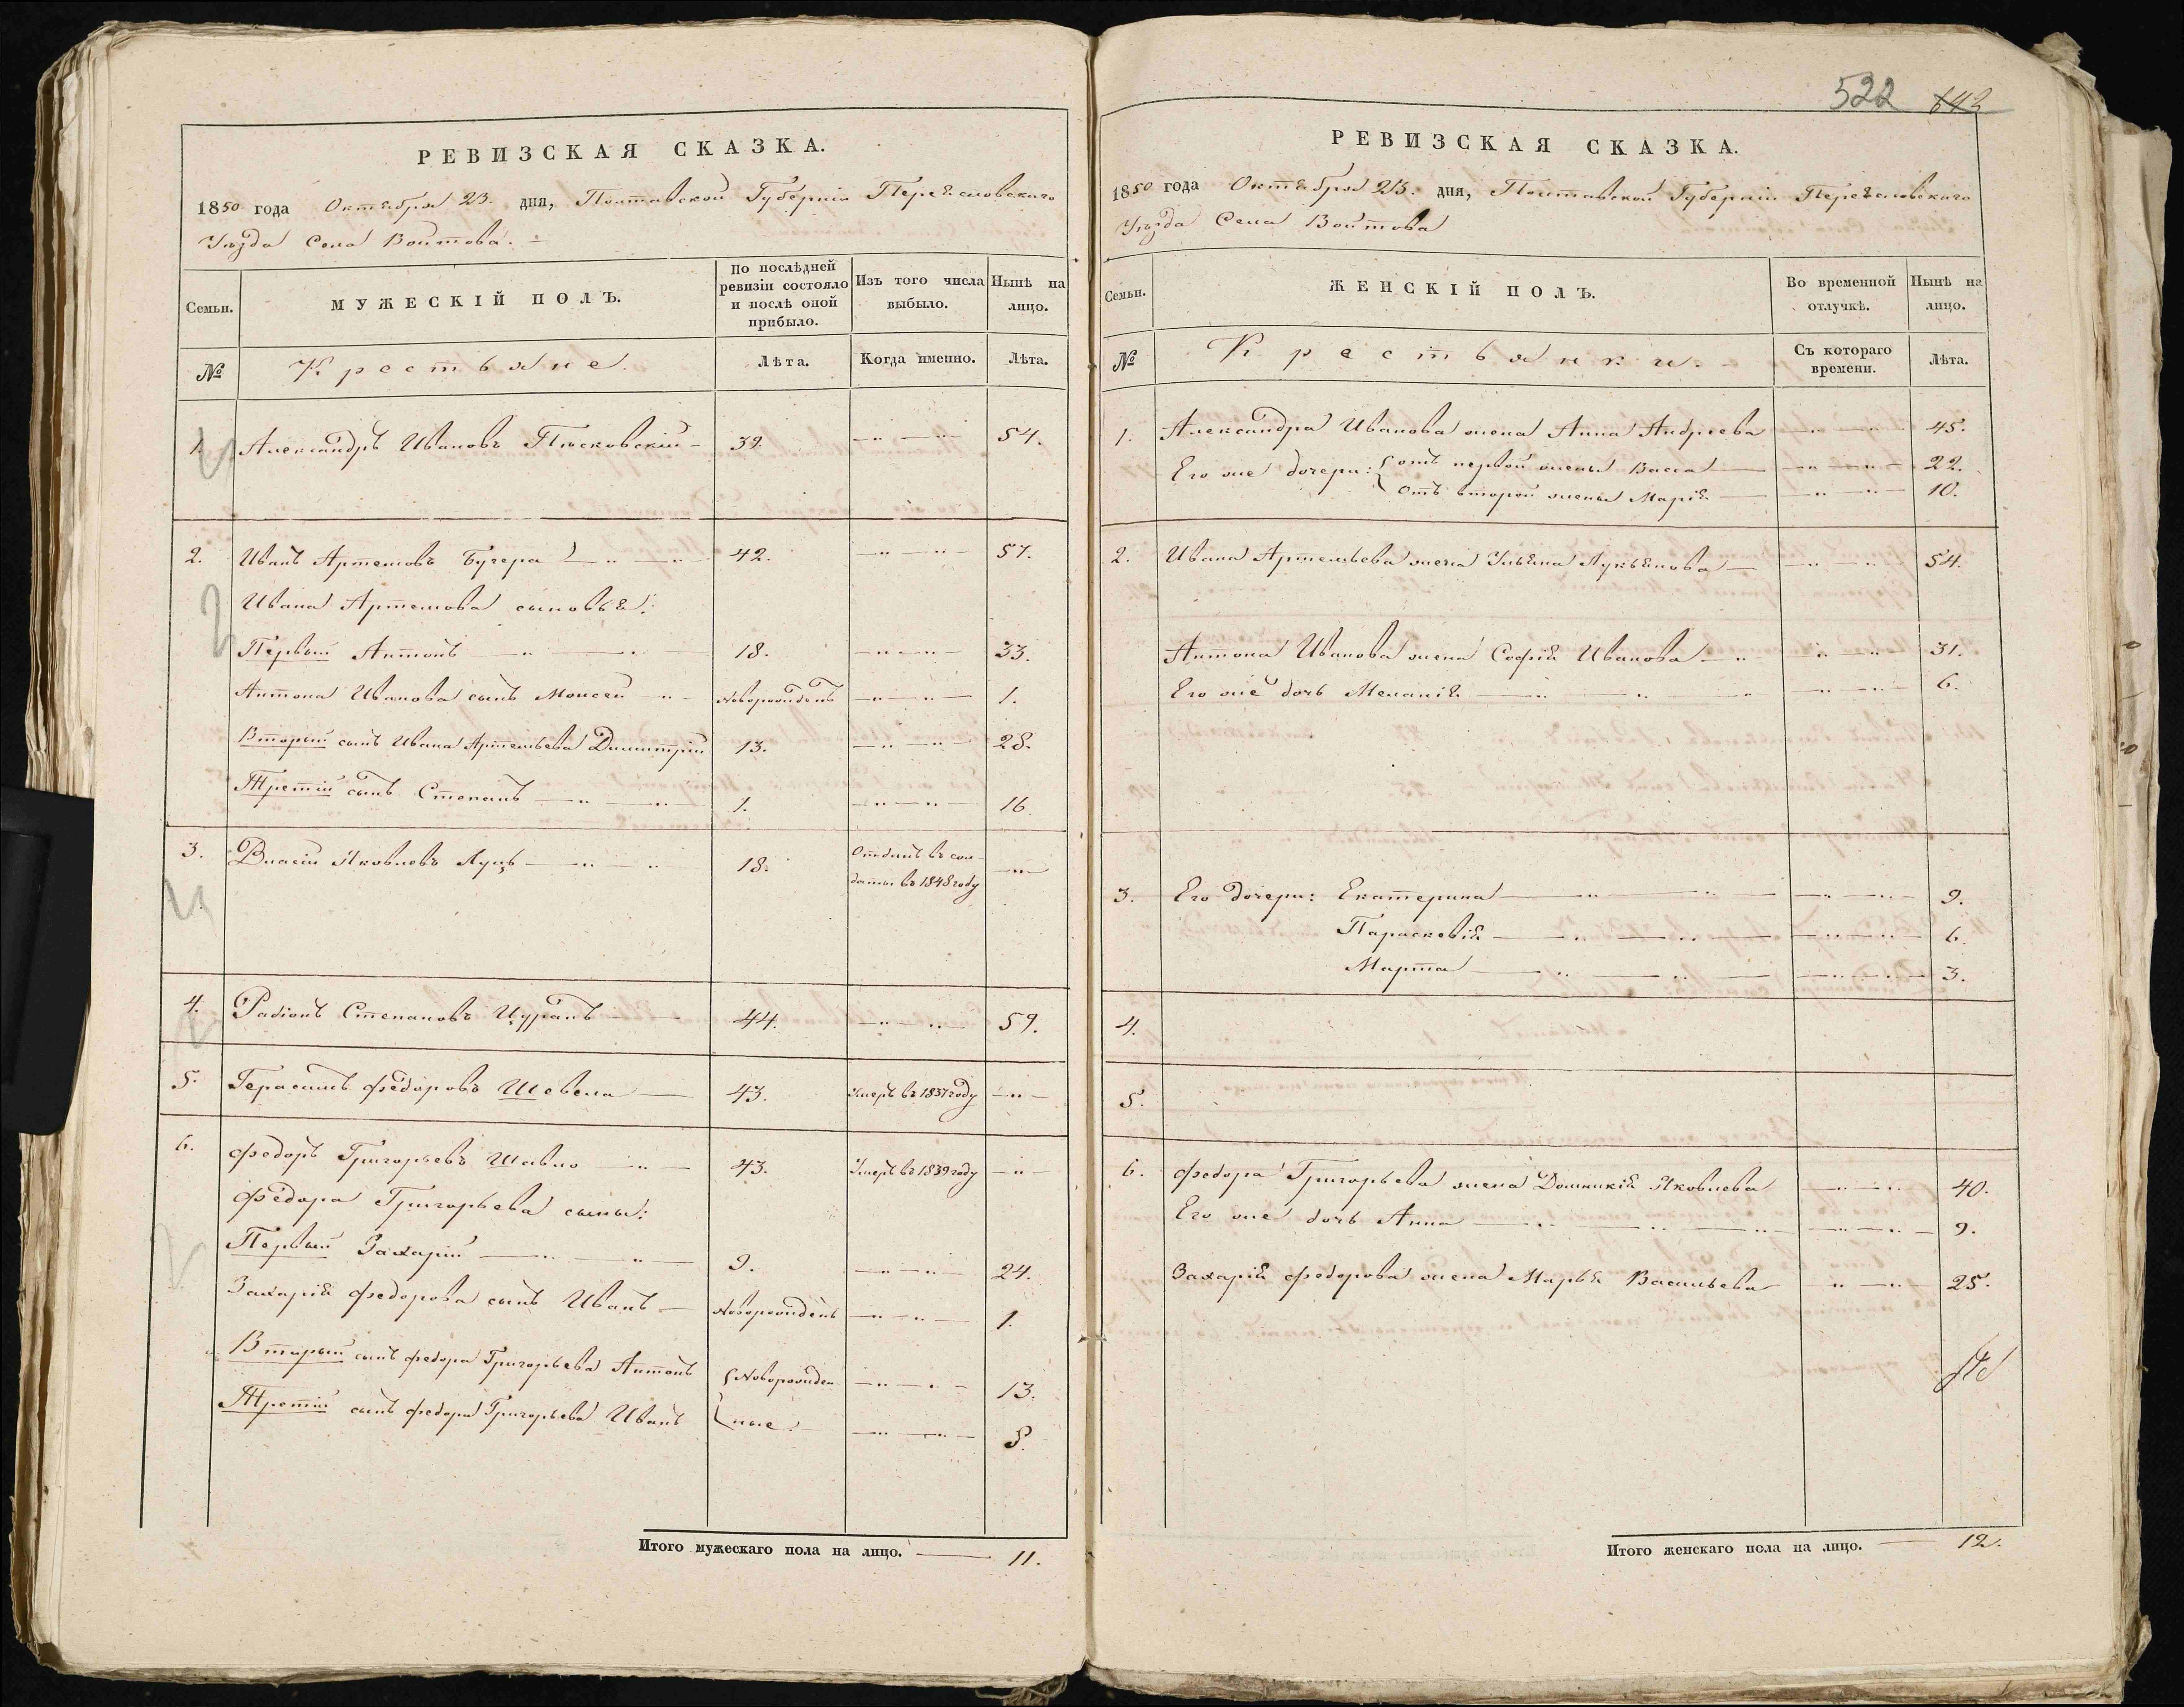 РЕВИЗСКАЯ СКАЗКА.
1850 года Октября 23. дня, Полтавской Губерніи Переяславскаго
Уѣзда Села Войтова.
Семьи. МУЖЕСКІЙ ПОЛЪ. По послѣдней ревизіи состояло и послѣ оной прибыло. Изъ того числа выбыло. Нынѣ на лицо.
№ Крестьяне. Лѣта. Когда именно. Лѣта.
1. Александръ Ивановъ 39. 54.
2. Иванъ Артемовъ Бугера 42. 57.
Ивана Артемова сыновья:
Первый Антонъ 18. 33.
Антона Иванова сынъ Моисей Новорожденъ 1.
Вторый сынъ Ивана Артемьева Димитрій 13. 28.
Третій сынъ Степанъ 1. 16
3. Власій Яковлевъ Луць 18. Отданъ въ сол-
даты въ 1848 году
4. Радіонъ Степановъ Цуранъ 44. 59.
5. Герасимъ Федоровъ Шевела 43. Умеръ въ 1837 году
6. Федоръ Григорьевъ Шавло 43. Умеръ въ 1839 году
Федора Григорьева сыны:
Первый Захарій 9. 24.
Захарія Федорова сынъ Иванъ Новорожденъ 1.
Вторый сынъ Федора Григорьева Антонъ Новорожден 13.
Третій сынъ Федора Григорьева Иванъ ные. 8.
Итого мужескаго пола на лицо. 11.
522 642
РЕВИЗСКАЯ СКАЗКА.
1850 года Октября 23. дня, Полтавской Губерніи Переяславскаго
Уѣзда Села Войтова
Семьи. ЖЕНСКІЙ ПОЛЪ. Во временной отлучкѣ. Нынѣ на лицо.
№ Крестьянки. Съ котораго времени. Лѣта.
1. Александра Иванова жена Анна Андреева 45.
Его же дочери: отъ первой жены Васса 22.
Отъ второй жены Марія 10.
2. Ивана Артемьева жена Ульяна Лукьянова 54.
Антона Иванова жена Софія Иванова 31.
Его же дочь Меланія 6.
3. Его дочери: Екатерина 9.
Параскевія 6.
Марта 3.
4.
5.
6. Федора Григорьева жена Домникія Яковлева 40.
Его же дочь Анна 9.
Захарія Федорова жена Марья Васильева 25.
Итого женскаго пола на лицо. 12.